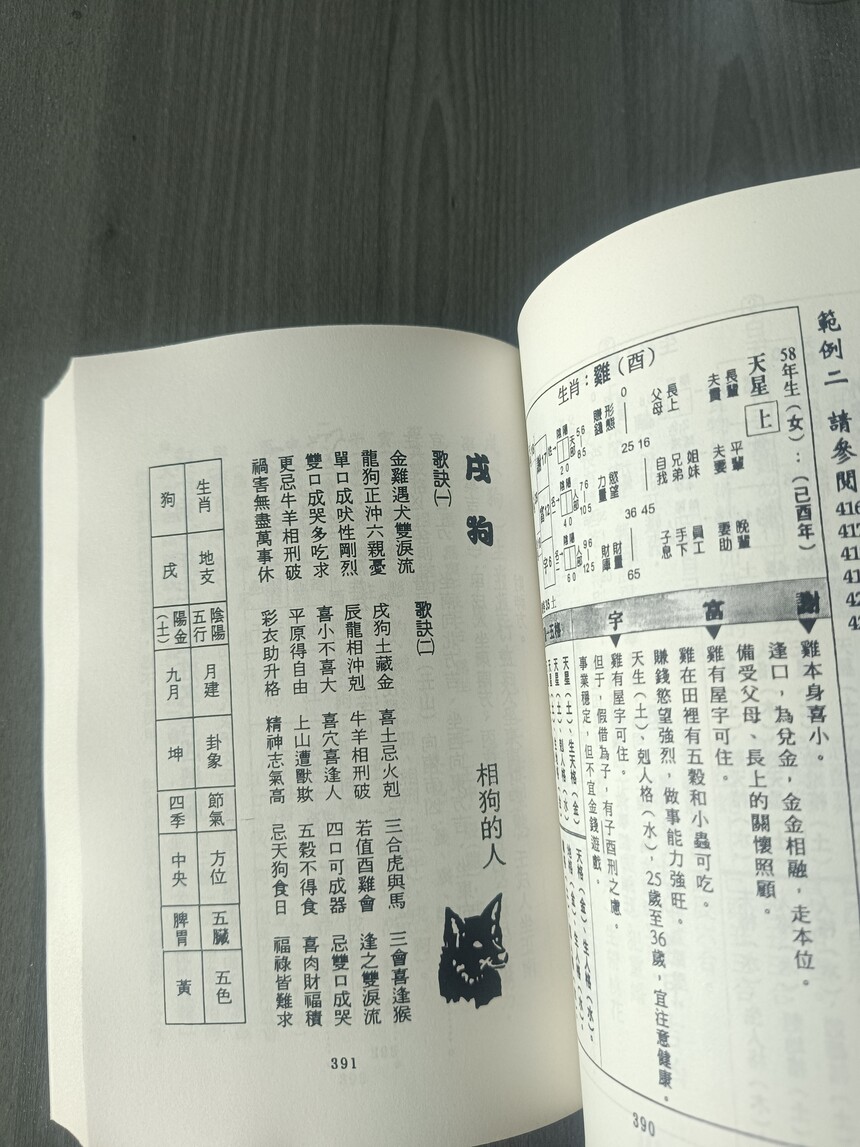 範例二 請參閱
58年生（女）：（己酉年）
天星 上
長輩 平輩 晚輩
夫貴 夫妻 妻助
長上 姐妹 員工
父母 兄弟 手下
自我 子息
0 25 16 36 45 65
形態 慾望 財量
賺錢 力量 財庫
生肖：雞（酉）
謝
雞本身喜小。
逢口，為兌金，金金相融，走本位。
備受父母、長上的關懷照顧。
富
雞有屋宇可住。
雞在田裡有五穀和小蟲可吃。
賺錢慾望強烈，做事能力強旺。
天生（土）、剋人格（水），25歲至36歲，宜注意健康。
字
雞有屋宇可住。
但于，假借為子，有子酉刑之慮。
事業穩定，但不宜金錢遊戲。
390
戌狗
相狗的人
歌訣(一)
金雞遇犬雙淚流
龍狗正沖六親憂
單口成吠性剛烈
雙口成哭多吃求
更忌牛羊相刑破
禍害無盡萬事休
歌訣(二)
戌狗土藏金 喜土忌火剋 三合虎與馬 三會喜逢猴
辰龍相沖剋 牛羊相刑破 若值酉雞會 逢之雙淚流
喜小不喜大 喜穴喜逢人 四口可成器 忌雙口成哭
平原得自由 上山遭獸欺 五穀不得食 喜肉財福積
彩衣助升格 精神志氣高 忌天狗食日 福祿皆難求
生肖 地支 陰陽五行 月建 卦象 節氣 方位 五臟 五色
狗 戌 陽金(土) 九月 坤 四季 中央 脾胃 黃
391